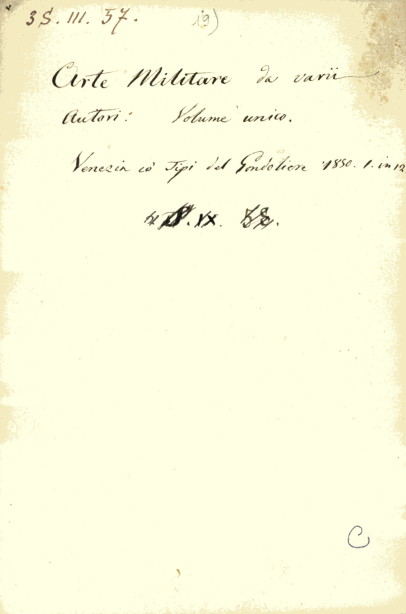 3S. III. 57. 19)
Arte Militare da varii
Autori: Volume unico.
Venezia co' Tipi del Gondoliere 1850. 1. in 12
IX.
C